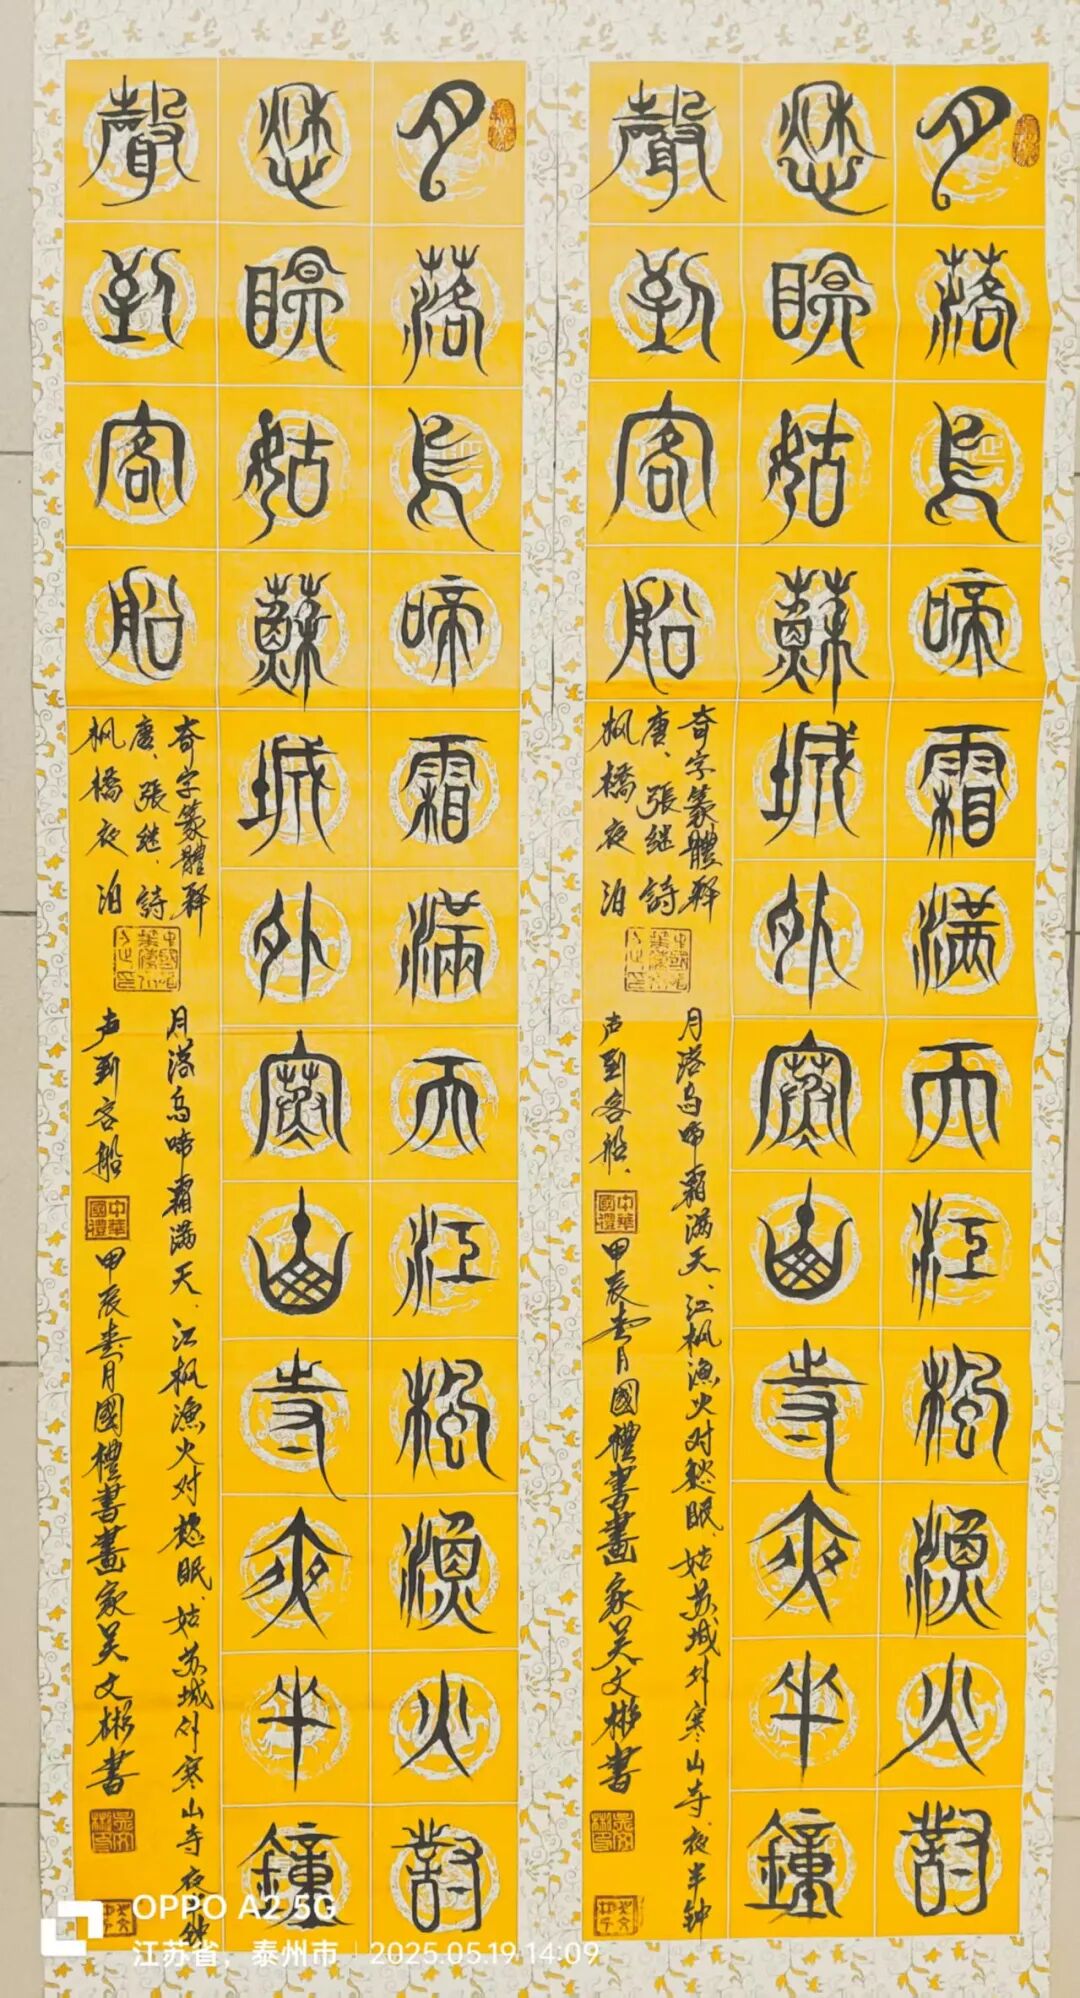 月落烏啼霜滿天江楓漁火對
愁眠姑蘇城外寒山寺夜半鐘
聲到客船
奇字篆體释
唐、張继、詩
枫橋夜泊
月落乌啼霜满天、江枫漁火对愁眠、姑苏城外寒山寺、夜半钟
声到客船、
中華國禮
甲辰
月國禮書畫家吴文彬書
月落烏啼霜滿天江楓漁火對
愁眠姑蘇城外寒山寺夜半鐘
聲到客船
奇字篆體释
唐、張继、詩
枫橋夜泊
月落乌啼霜满天、江枫漁火对愁眠、姑苏城外寒山寺夜
钟
声到客船
中華國禮
甲辰
月國禮書畫家吴文彬書
OPPO A2 5G
江苏省，泰州市 | 2025.05.19 14:09